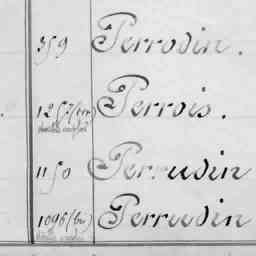 359 Perrodin.
1257(ter) Perrois.
1150 Perrudin
1096(bis) Perrudin